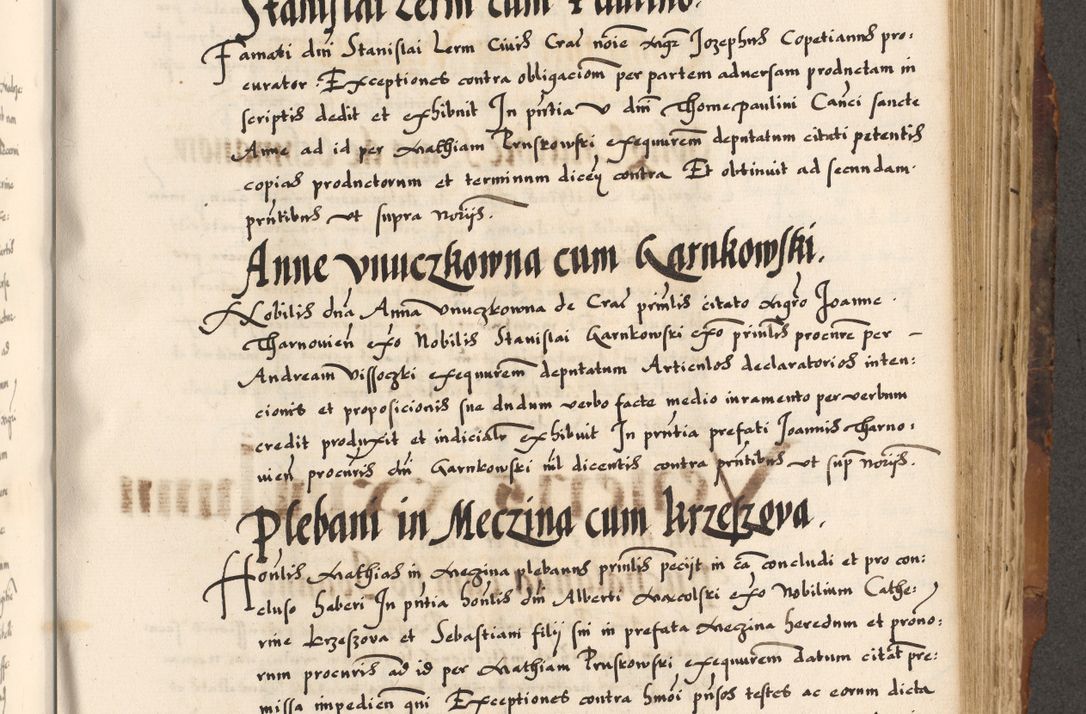 Stanislai Lerm cum Paulino.
Famati dni Stanislai Lerm Civis Crac noie Mgr Jozephus Copetianus pro:
curator Exceptiones contra obligaciom per partem adversam productam in
scriptis dedit et exhibuit In pntia V dni Thome paulini Canci sancte
Anne ad id per Mathiam Pruskowski exequurem deputatum citati petentis
copias productorum et terminum dicen contra Et obtinuit ad secundam
pntibus ut supra Norijs.
Anne Vnuczkowna cum Garnkowski.
Nobilis dna Anna Vnuczkowna de Crac prinlis citato Mgro Joanne
Tharnovien exo Nobilis Stanislai Garnkowski exo prinlis procure per
Andream Vissoczki exequurem deputatum Articulos declaratorios inten:
cionis et proposicionis sue dudum verbo facte medio iuramento per verbum
credit produxit et indicialr exhibuit In pntia prefati Joannis Tharno:
vien procuris dni Garnkowski nil dicentis contra pntibus ut sup Norijs.
Plebani in Meczina cum krzeszova.
Honlis Mathias in Meczina plebanus prinlis pecijt in ca concludi et pro con:
cluso haberi In pntia honlis dni Alberti Maxcolski exo Nobilium Cathe:
rine krzeszova et Sebastiani filij sui in prefata Meczina heredum et prono:
rum procuris ad id per Mathiam Pruskowski exequurem datum citat pre:
missa impedien qui Exceptiones contra hmoi pnsos testes ac eorum dicta